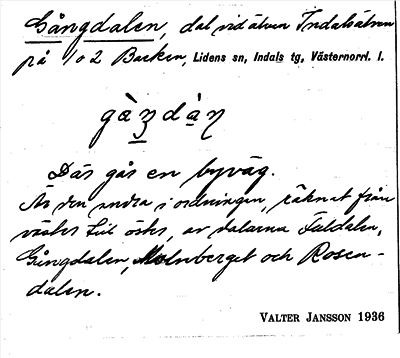 Gångdalen, dal vid älven Indalsälven
på 1 o 2 Backen, Lidens sn, Indals tg, Västernorrl. l.
gàʒdàɳ
Där går en byväg.
Är den andra i ordningen, räknat från
väster till öster, av dalarna Faldalen,
Gångdalen, och Rosen-
dalen.
VALTER JANSSON 1936